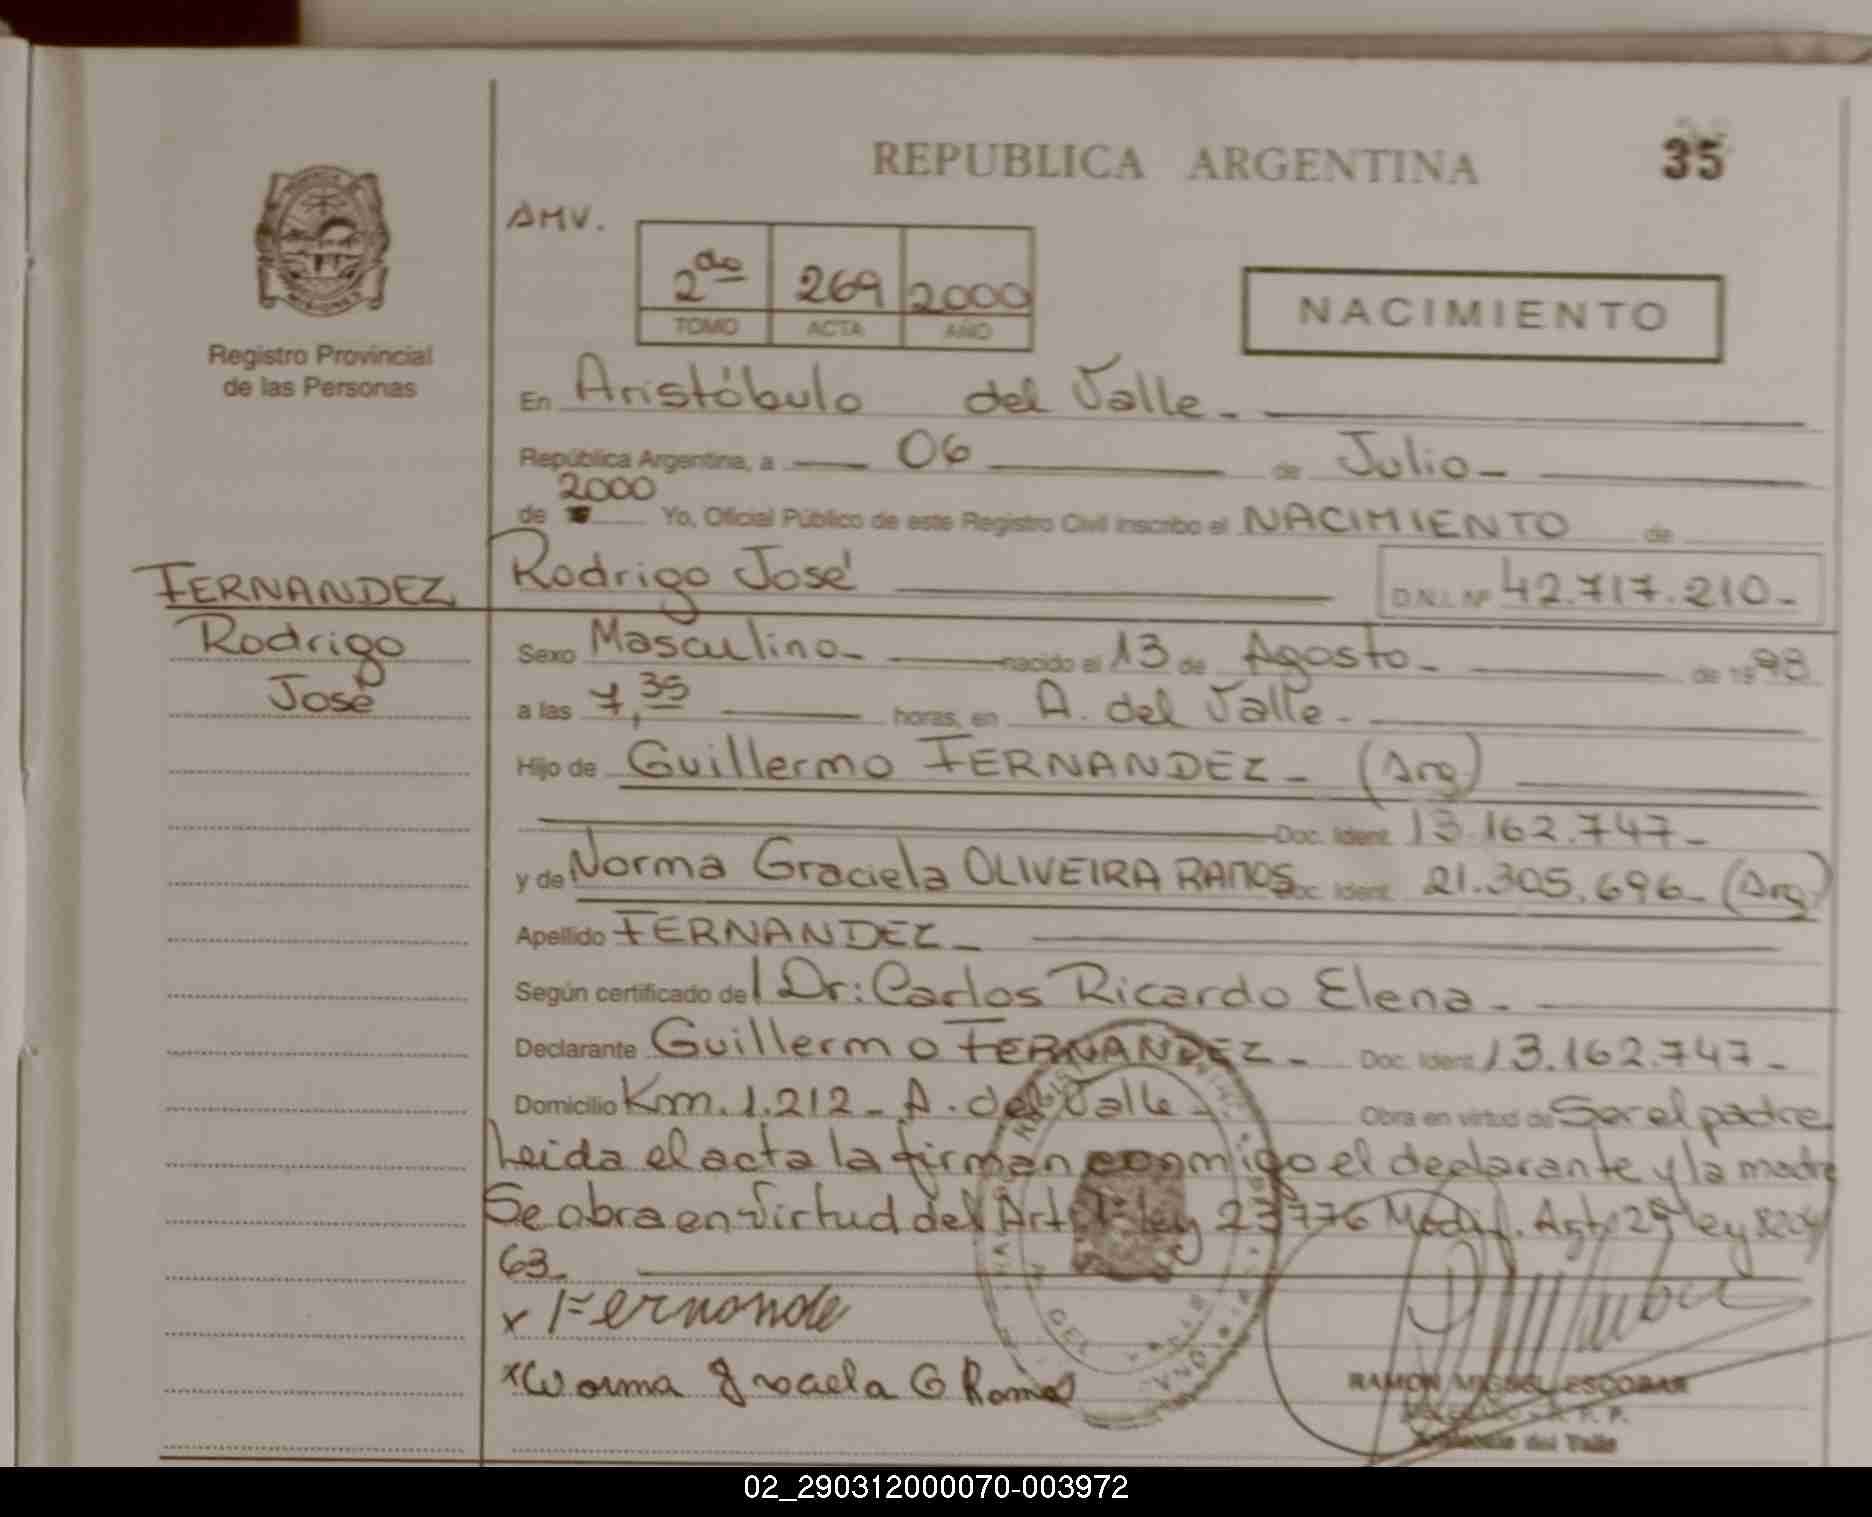 REPUBLICA ARGENTINA
35
AMV.
2do 269 2000
TOMO ACTA AÑO
NACIMIENTO
Registro Provincial
de las Personas
En Aristóbulo del Valle.-
República Argentina, a 06 de Julio-
2000
de Yo, Oficial Público de este Registro Civil inscribo el NACIMIENTO de
FERNANDEZ
Rodrigo
José
Rodrigo José D.N.I. Nº 42.717.210-
Sexo Masculino- nacido el 13 de Agosto- de 1998
a las 7,35 horas, en A. del Valle.-
Hijo de Guillermo FERNANDEZ- (Arg)
Doc. Ident. 13.162.747-
y de Norma Graciela OLIVEIRA RAMOS Doc. Ident. 21.305.696- (Arg)
Apellido FERNANDEZ-
Según certificado del Dr: Carlos Ricardo Elena-
Declarante Guillermo FERNANDEZ- Doc. Ident. 13.162.747-
Domicilio Km. 1.212- A. del Valle- Obra en virtud de Ser el padre
Leida el acta la firman conmigo el declarante y la madre
Se obra en virtud del Art 1º ley 23776 Modif. Art 29 ley 8204/
63-
x Fernande
x Norma Graciela O Ramos
RAMON MIGUEL ESCOBAR
del Valle
DEL VALLE
02_290312000070-003972